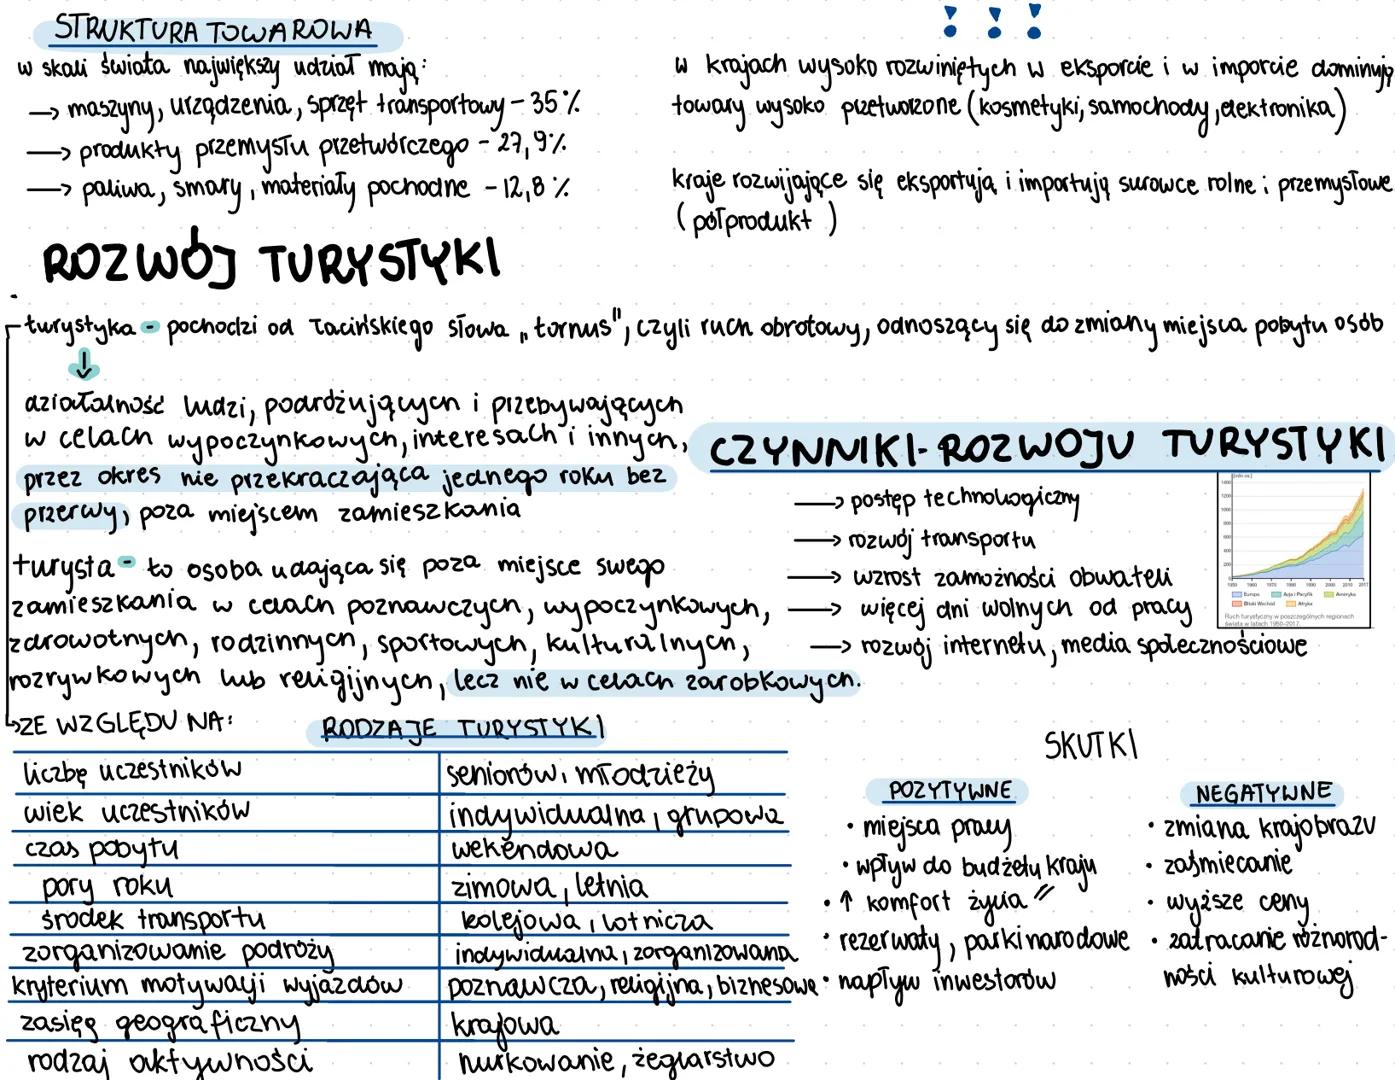 STRUKTURA TOWAROWA
w skali świata największy udział mają:
→ maszyny, urządzenia, sprzęt transportowy - 35%
→ produkty przemysłu przetwórczego - 27,9%
→ paliwa, smary, materiały pochodne - 12,8%
!!!
w krajach wysoko rozwiniętych w eksporcie i w imporcie dominują
towary wysoko przetworzone (kosmetyki, samochody, elektronika)
kraje rozwijające się eksportują i importują surowce rolne i przemysłowe
(półprodukt)
ROZWÓJ TURYSTYKI
turystyka - pochodzi od łacińskiego słowa „tornus", czyli ruch obrotowy, odnoszący się do zmiany miejsca pobytu osób
działalność ludzi, podróżujących i przebywających
w celach wypoczynkowych, interesach i innych,
przez okres nie przekraczająca jednego roku bez
przerwy, poza miejscem zamieszkania
turysta - to osoba udająca się poza miejsce swego
zamieszkania w celach poznawczych, wypoczynkowych,
zdrowotnych, rodzinnych, sportowych, kulturalnych,
rozrywkowych lub religijnych, lecz nie w celach zarobkowych.
CZYNNIKI ROZWOJU TURYSTYKI
→ postęp technologiczny
→ rozwój transportu
→ wzrost zamożności obwateli
→ więcej dni wolnych od pracy
→ rozwój internetu, media społecznościowe
[mln os.]
1400
1200
1000
800
600
400
200
0
1950 1960 1970 1980 1990 2000 2010 2017
Europa Azja i Pacyfik Ameryka
Bliski Wschód Afryka
Ruch turystyczny w poszczególnych regionach
świata w latach 1950-2017.
ZE WZGLĘDU NA:
RODZAJE TURYSTYKI
liczbę uczestników seniorów, młodzieży
wiek uczestników indywidualna, grupowa
czas pobytu wekendowa
pory roku zimowa, letnia
środek transportu kolejowa, lotnicza
zorganizowanie podróży indywidualna, zorganizowana
kryterium motywacji wyjazdów poznawcza, religijna, biznesowe
zasięg geograficzny krajowa
rodzaj aktywności nurkowanie, żeglarstwo
SKUTKI
POZYTYWNE
• miejsca pracy
• wpływ do budżetu kraju
• ↑ komfort życia
• rezerwaty, parki narodowe
• napływ inwestorów
NEGATYWNE
• zmiana krajobrazu
• zaśmiecanie
• wyższe ceny
• zatracanie różnorod-
ności kulturowej